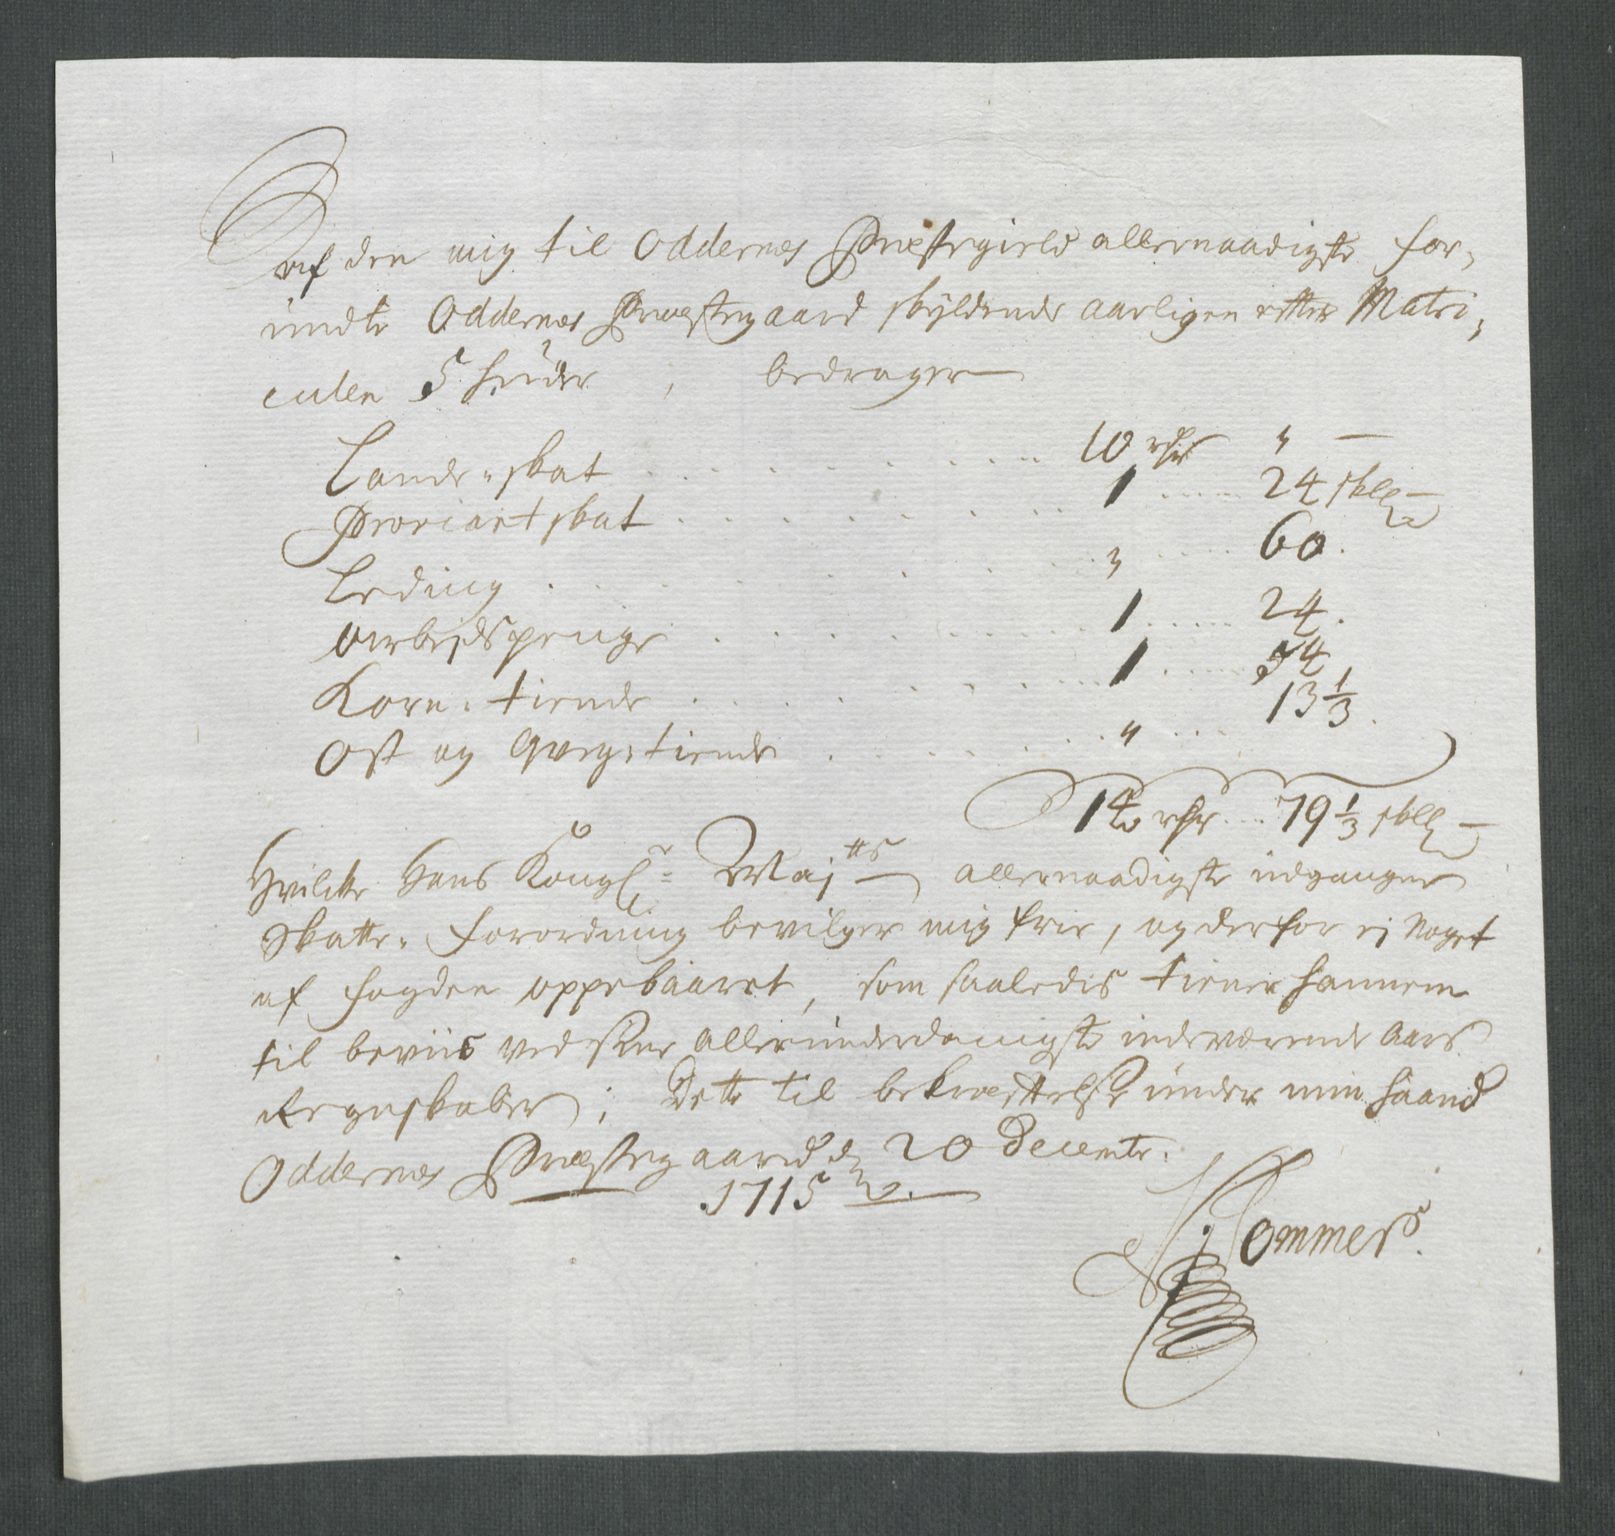 Af den mig til Oddernes Præstegield allernaadigste for,
undte Oddernes Præstegaard skyldende aarligen efter Matri,
culen 5 huder, bedrager
Lands-skat . . . 10 rdr " —
Proviantskat . . . 1 . . . 24 skll
Leding . . . " . . . 60.
Arbejdspenge . . . 1 . . . 24.
Korn-tiende . . . 1 . . . 54
Ost og Qveg-tiende . . . " . . . 13 1/3.
14 rdr . . . 79 1/3 skll
Hvilcke Hans Kongl: Maj:tts allernaadigste udgangne
Skatte-forordning bevilger mig frie, og derfor ej noget
af fogden oppebaaret, som saaledis tiener hannem
til beviis ved sine allerunderdanigste indeværende Aars
Regnskaber; Dette til bekræfftelse under min haand
Oddernes Præstegaard d. 20 Decembr.
1715.
Sommer